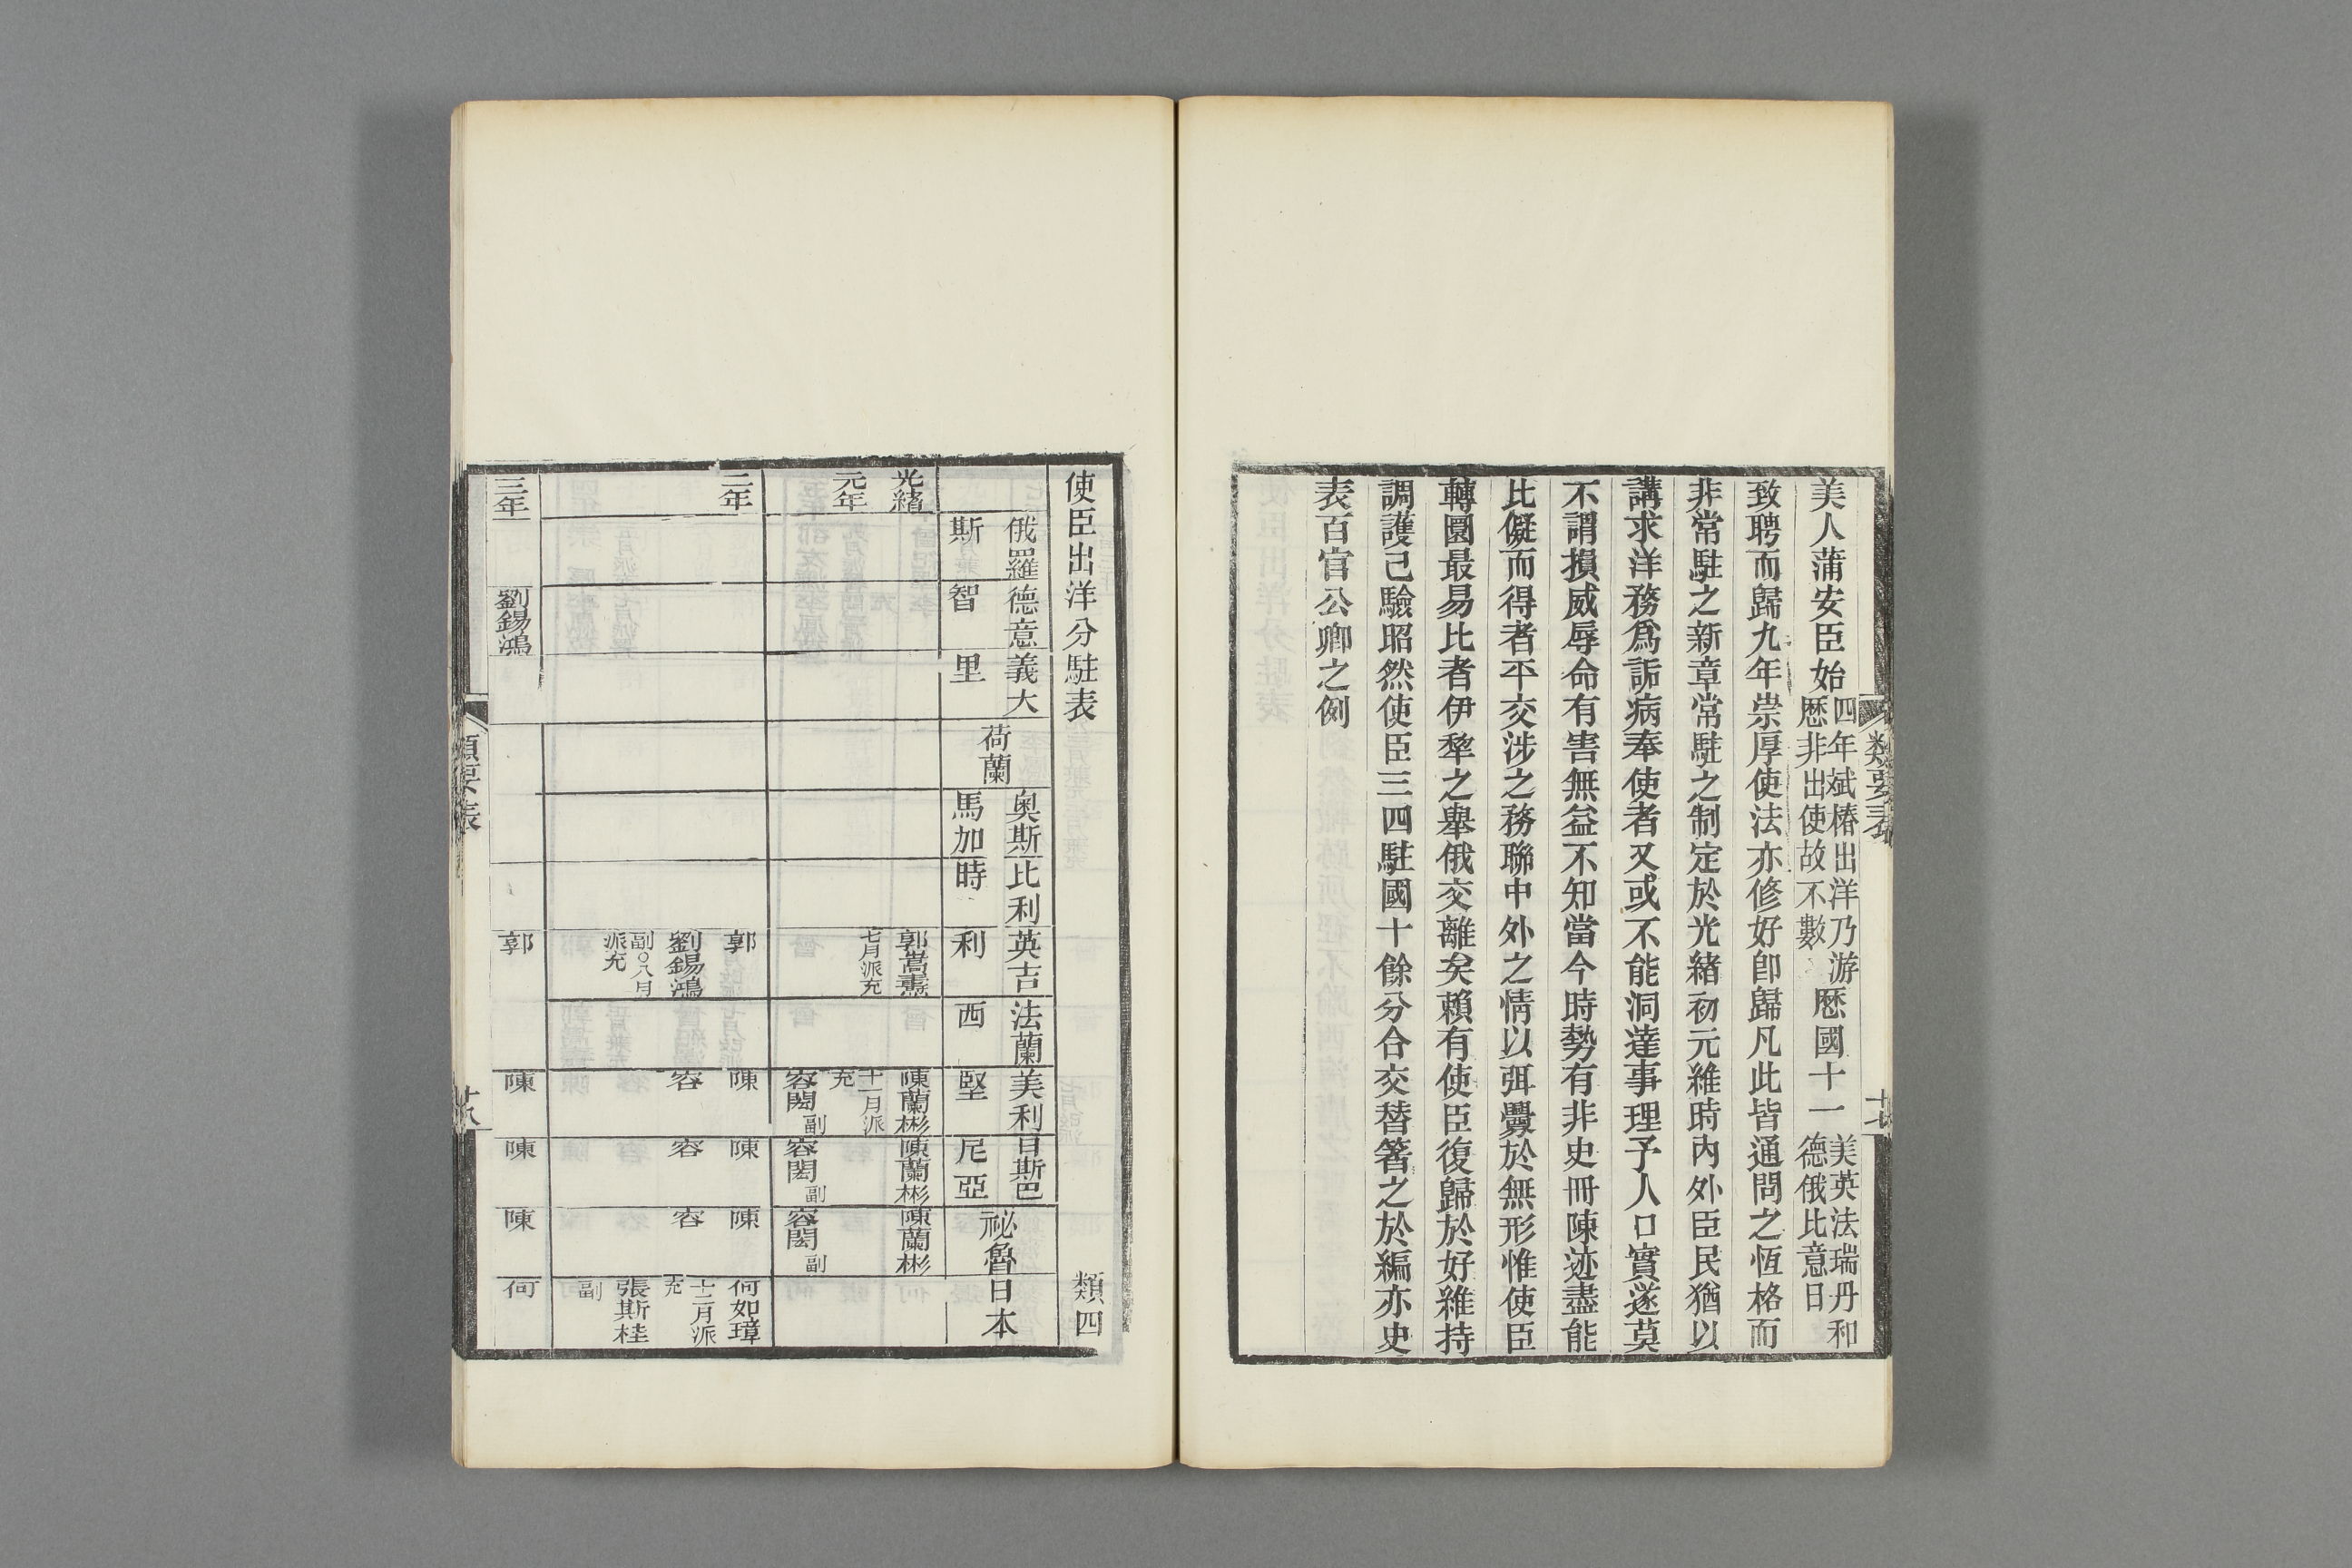 美人蒲安臣始四年斌椿出洋乃游歷非出使故不數歷國十一美英法瑞丹和德俄比意日
致聘而歸九年崇厚使法亦修好卽歸凡此皆通問之恆格而
非常駐之新章常駐之制定於光緒初元維時內外臣民猶以
講求洋務爲詬病奉使者又或不能洞達事理予人口實遂莫
不謂損威辱命有害無益不知當今時勢有非史冊陳迹盡能
比儗而得者平交涉之務聯中外之情以弭釁於無形惟使臣
轉圜最易比者伊犂之舉俄交離矣賴有使臣復歸於好維持
調護己驗昭然使臣三四駐國十餘分合交替箸之於編亦史
表百官公卿之例
類要表
十七
使臣出洋分駐表
類四
俄羅斯
德意智
義大里
荷蘭
奧斯馬加
比利時
英吉利
法蘭西
美利堅
日斯巴尼亞
祕魯
日本
光緖元年
郭嵩燾
七月派充
陳蘭彬
十一月派充
容閎副
陳蘭彬
容閎副
陳蘭彬
容閎副
二年
郭
劉錫鴻
副○八月派充
陳
容
陳
容
陳
容
何如璋
十二月派充
張斯桂
副
三年
劉錫鴻
郭
陳
陳
陳
何
類要表
十八